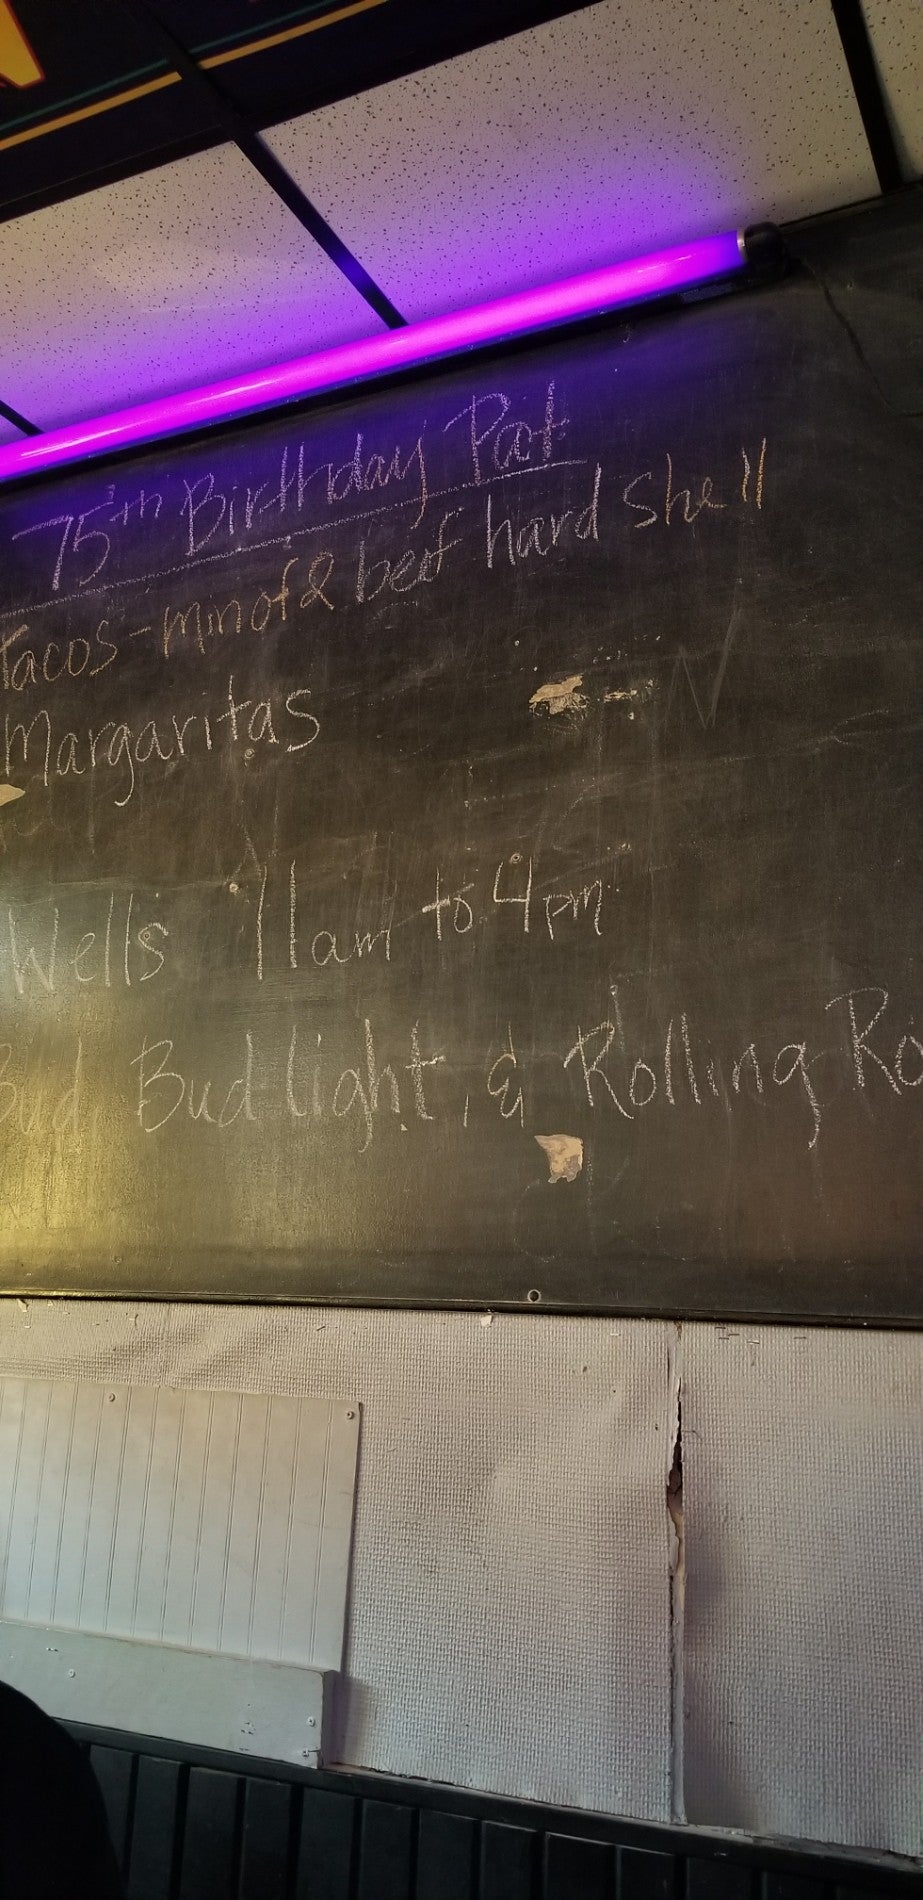 75th Birthday Pat
Tacos - & beef hard shell
Margaritas
Wells 11am to 4pm
Bud, Bud light, & Rolling Ro